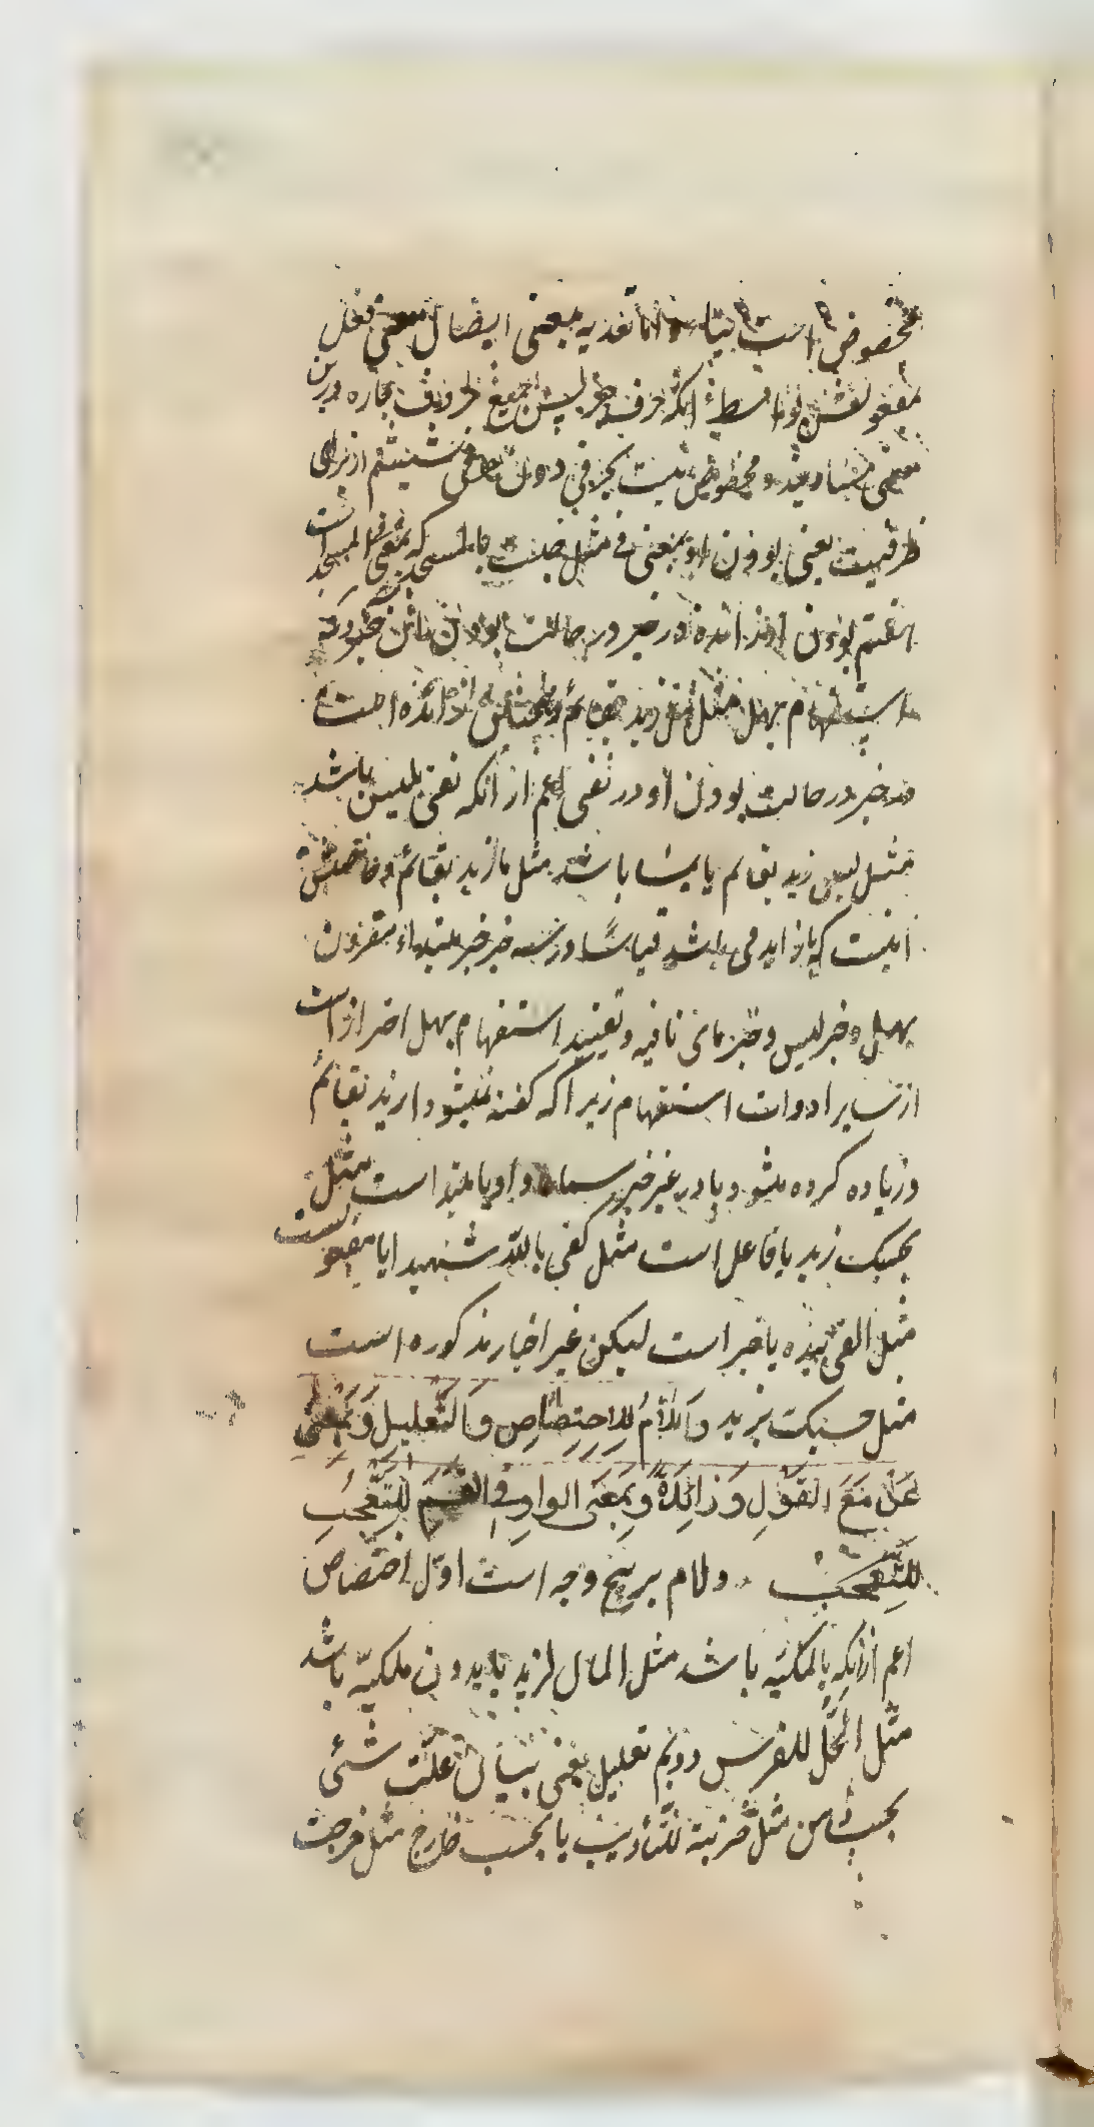 مخصوص است بباء و اما تعدیه بمعنی ایصال معنی فعل
بمفعولش بواسطهٔ آنکه حرف جر پس جمیع حروف جاره درین
معنی مساویند و مخصوص نیست بحرفی دون حرفی ششم از برای
ظرفیت یعنی بودن او بمعنی فی مثل جلست بالمسجد که بمعنی فی المسجد است
هفتم بودن او زائده در خبر در حالت بودن این خبر در
استفهام بهل مثل هل زید بقائم زائده است
در خبر در حالت بودن او در نفی اعم از آنکه نفی بلیس باشد
مثل لیس زید بقائم یا بما باشد مثل ما زید بقائم
اینست که باء زاید می باشد قیاسًا در سه خبر خبر مبتداء مقرون
بهل و خبر لیس و خبر مای نافیه و تقیید استفهام بهل احتراز است
از سایر ادوات استفهام زیرا که گفته نمیشود ازید بقائم
و زیاده کرده میشود باء در غیر خبر سماعا و او یا مبتدا است مثل
بحسبک زید یا فاعل است مثل کفی بالله شهیدا یا مفعولست
مثل القی بیده یا خبر است لیکن غیر اخبار مذکوره است
مثل حسبک بزید وَاللّامُ لِلاِختِصَاصِ وَالتَّعلیلِ وَبِمَعنی
عَنْ مَعَ القَوْلِ وَزَائِدَةً وَبِمَعنَی الواوِ فِی القَسَمِ لِلتَّعَجُّبِ
لِلتَّعَجُّبِ و لام بر پنج وجه است اوّل اختصاص
اعم ازآنکه بالمکیّه باشد مثل المال لزید یا بدون ملکیّه باشد
مثل الجُلّ للفرس دویم تعلیل یعنی بیان علّت شئی
بحسب ذهن مثل ضربته للتّأدیب یا بحسب خارج مثل خرجت